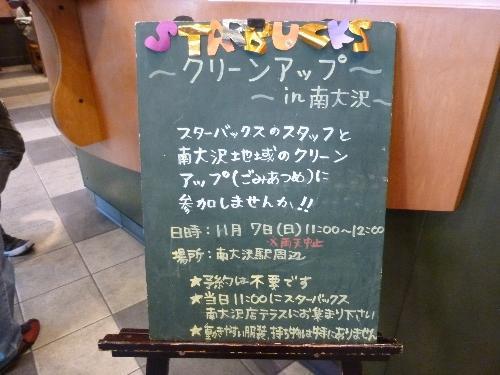 STARBUCKS
～クリーンアップ～
～in 南大沢～
スターバックスのスタッフと
南大沢地域のクリーン
アップ(ごみあつめ)に
参加しませんか!!
日時：11月7日(日)11:00～12:00
×雨天中止
場所：南大沢駅周辺
★予約は不要です
★当日11:00にスターバックス
南大沢店テラスにお集まり下さい
★動きやすい服装、持ち物は特にありません